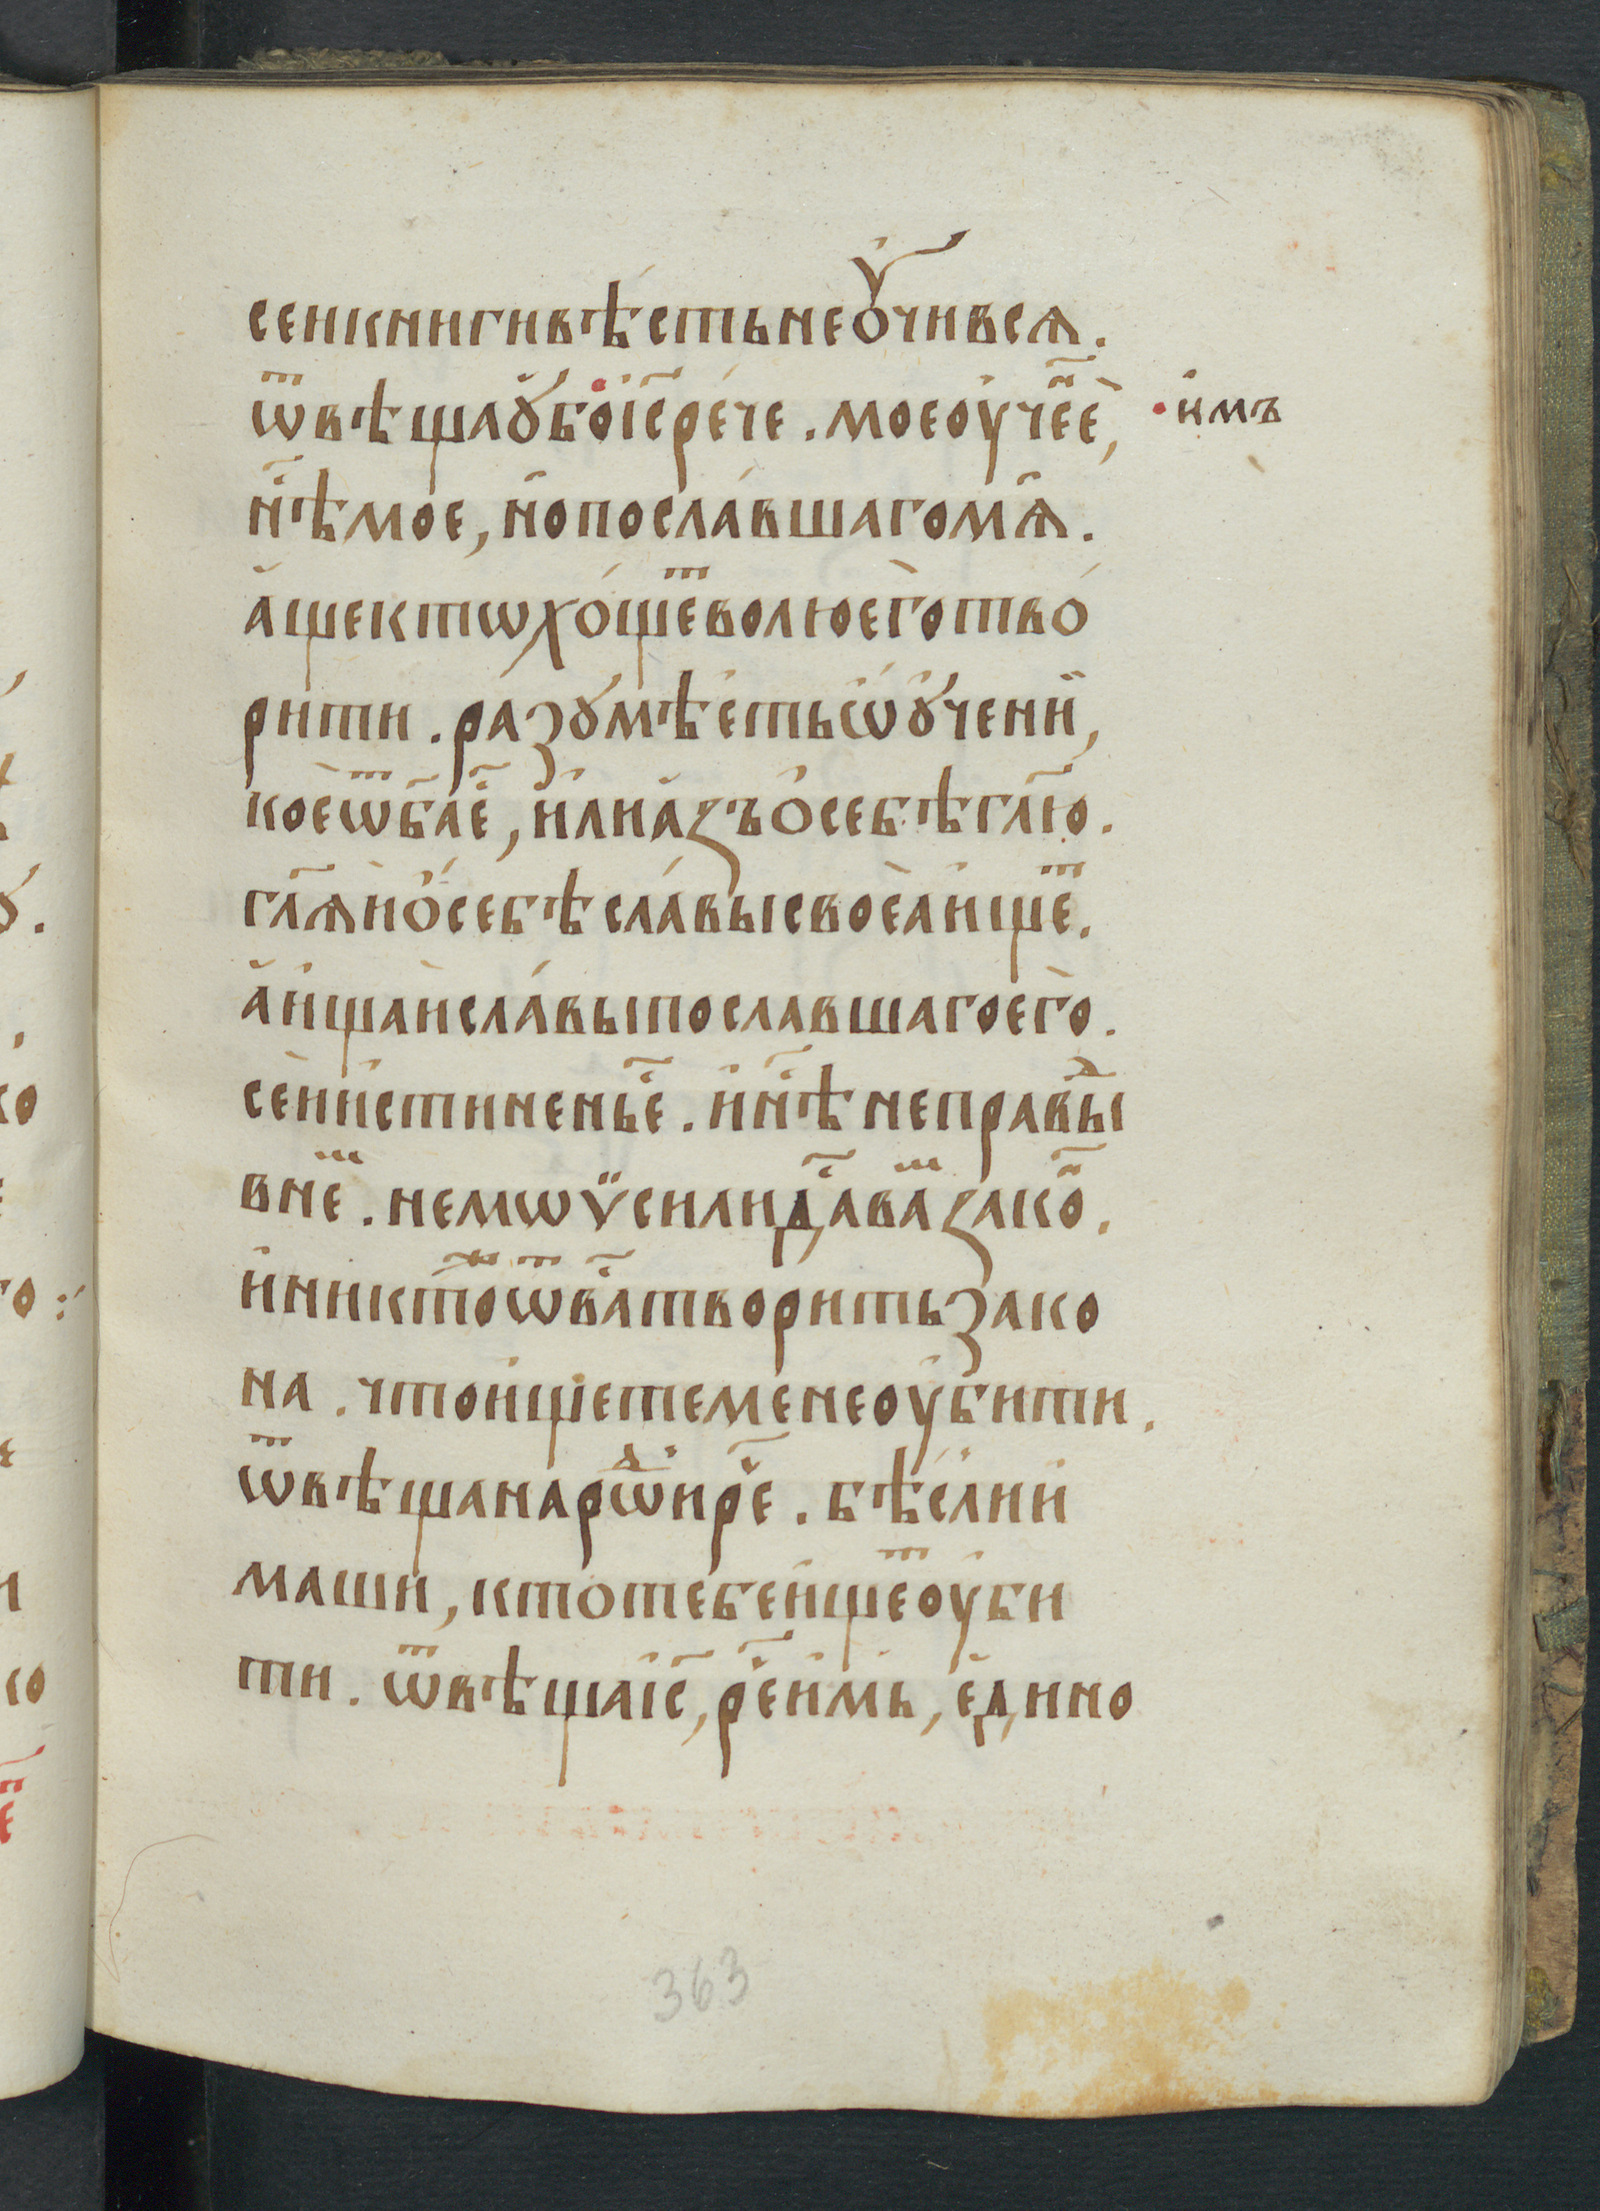 сеи книги вѣсть не ѹ҆чивсѧ.
ѿвѣща ꙋ҆бо і҆с҃ рече. мое оу҆ч҃ее, и҆мъ
нѣ҃ мое, но пославшаго мѧ.
а҆ще кто̑ хо́щеⷮ волю е҆го̀ тво́
рити. разꙋмѣ́еть ѡ҆ ꙋ҆чении,
коѐ ѿ б҃а е҆, и҆ли а҆зъ ѻ҆ себѣ гл҃ю.
гл҃ѧи ѻ҆ себѣ сла́вы своеа̀ и҆щеⷮ.
а҆ и҆щаи сла́вы пославшаго е҆го̀.
се́и и҆стиненъ е҆҃. и҆ нѣ҃ неправⷣы
в неⷨ. не мѡѵ̈си ли да҃ ваⷨ зако҃.
и҆ никтоⷤ ѿ ва҃ творить зако
на. что и҆щете мене оу҆бити.
ѿвѣща нароⷣ и҆ ре҃. бѣ́с ли и҆
маши, кто тебе и҆щеⷮ оу҆би
ти. ѿвѣща і҆с҃, ре҃ и҆мь, е҆дино
363